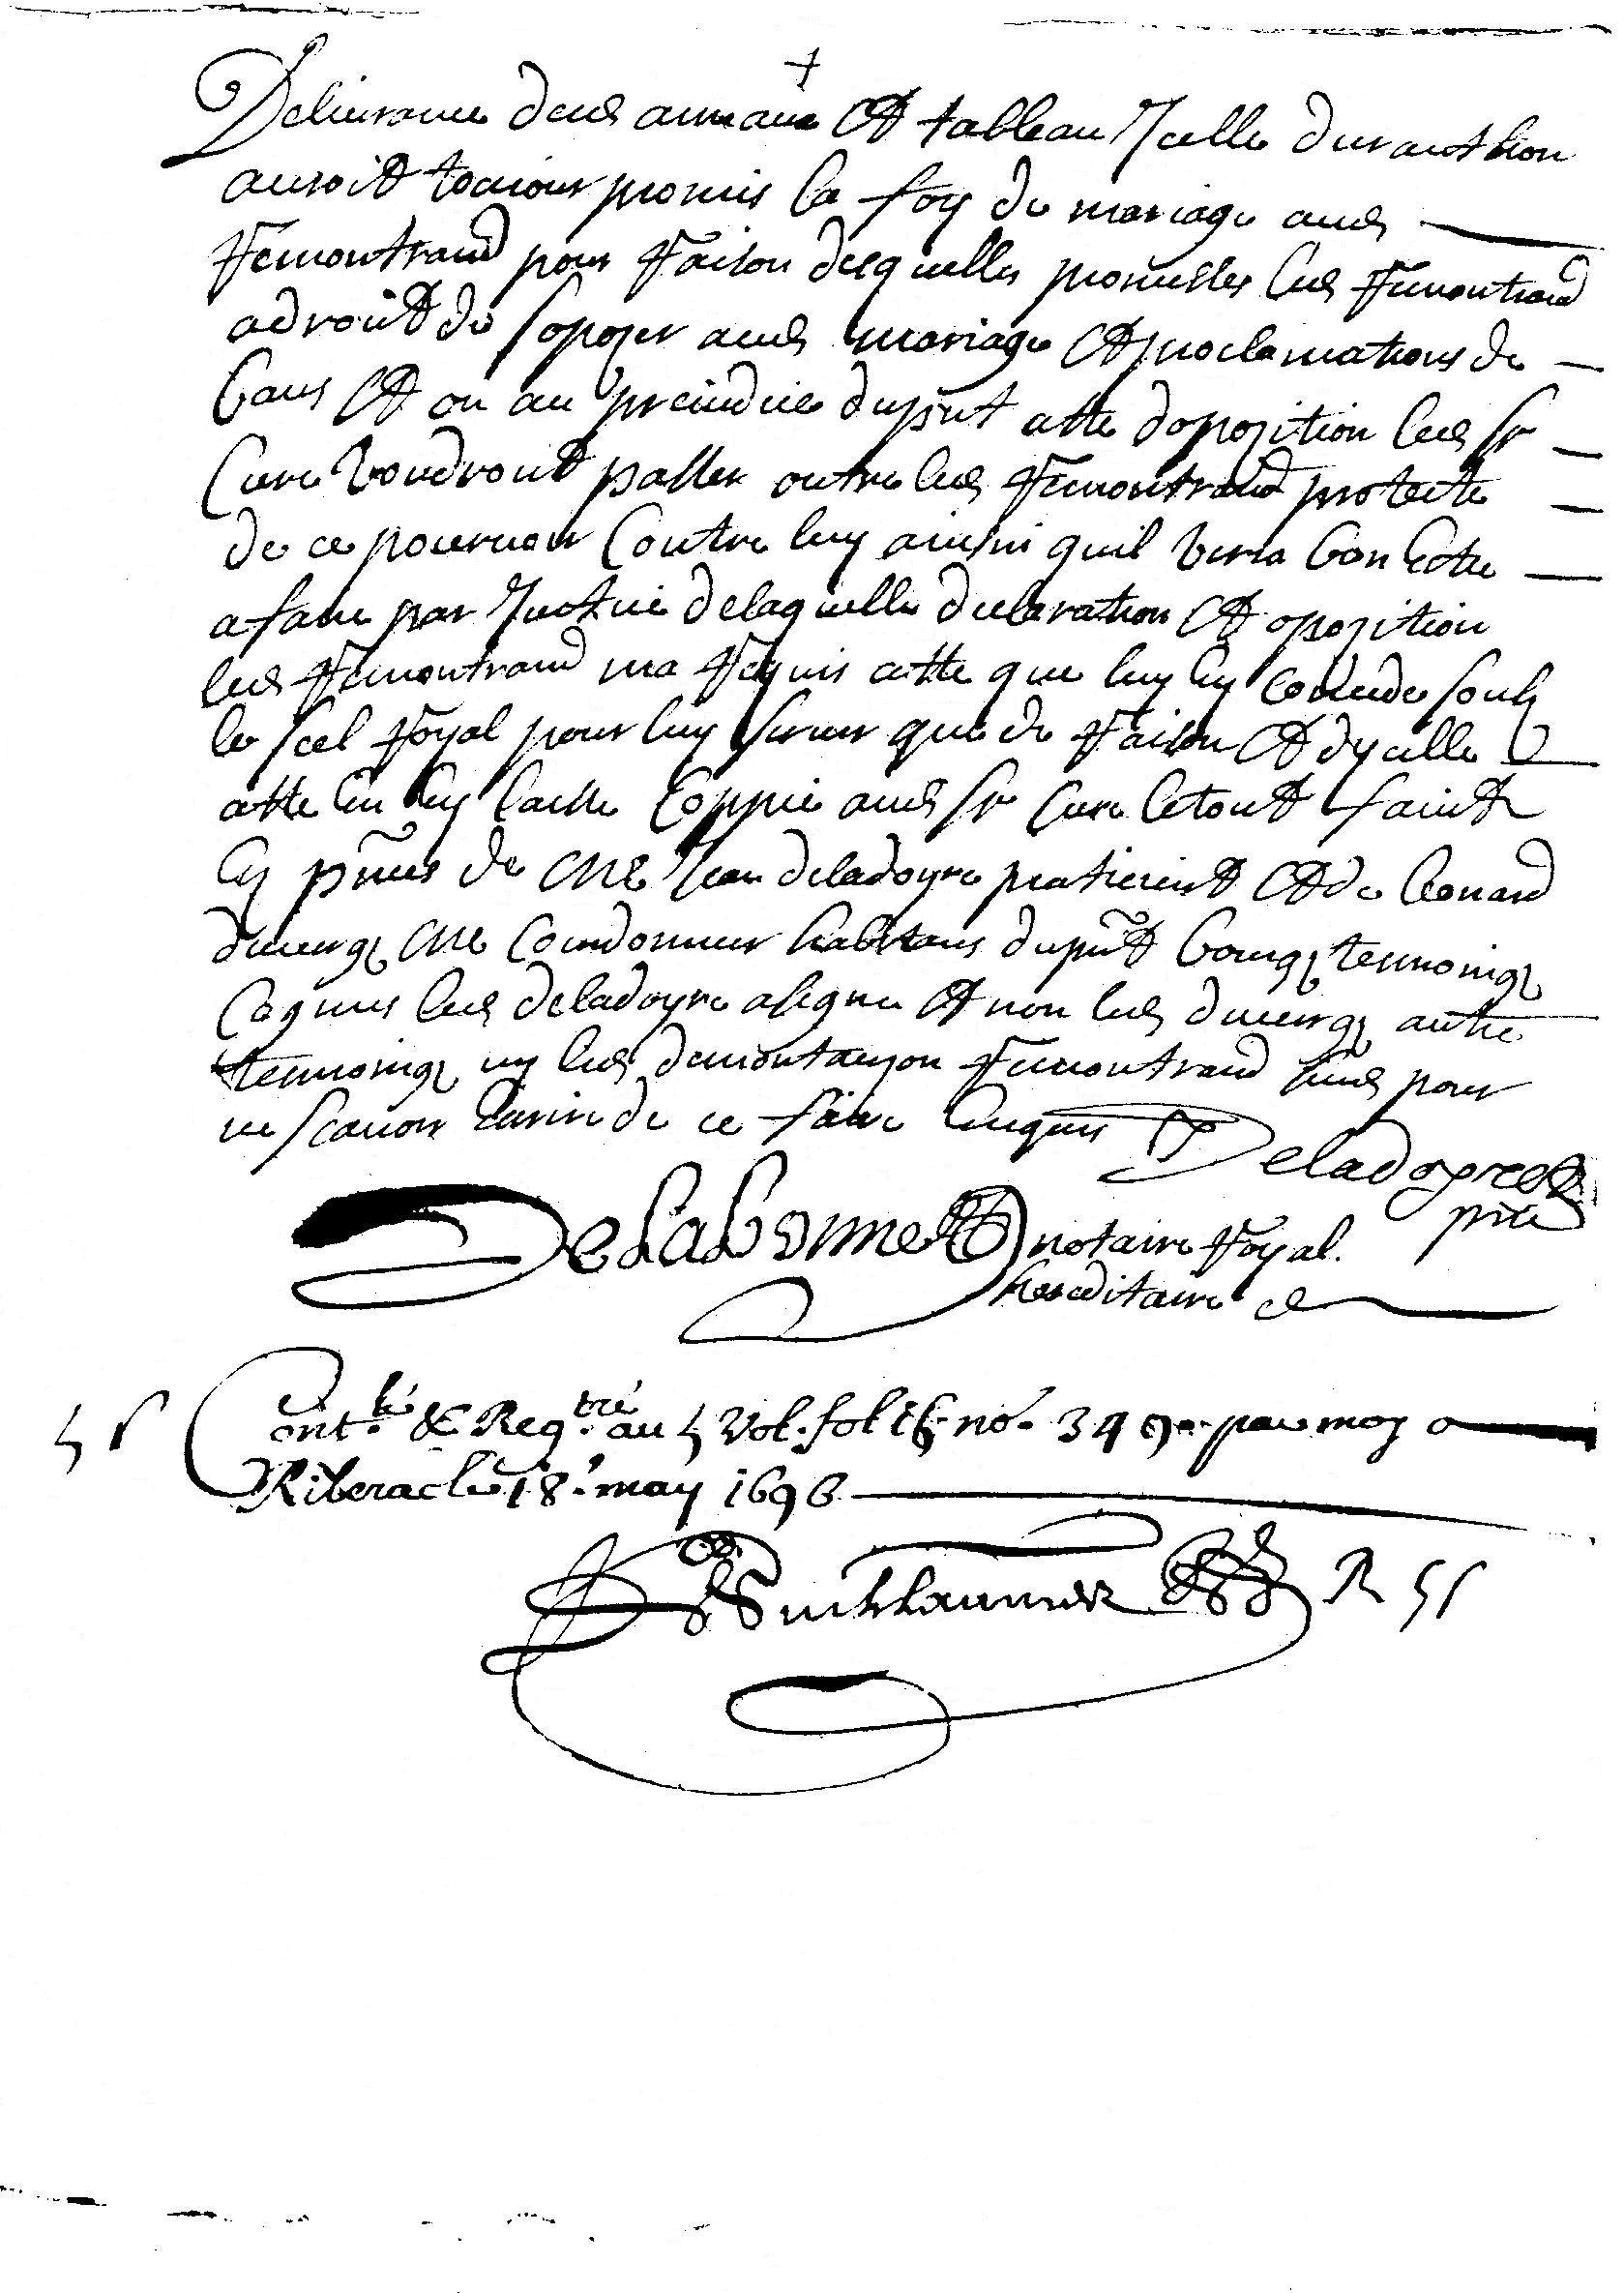 Deliurance desd anneaux Et tableau Jcelle duranthon
auroit tousiours promis la foy de mariage aud
Remontrand pour Raison desquelles promesses led Remontrand
a droit de sopozer aud mariage Et proclamations de
bans Et ou au preiudice du pnt atte dopozition led sr
Curé voudroit passer outre led Remontrand proteste
de ce pouruoir Contre luy ainsin quil verra bon Estre
a faire par Justice de laquelle declaration Et opozition
led Remontrand ma Requis atte que luy Ey soubz
le scel Royal pour luy seruir que de Raison Et dycelle
atte En Ey laisse Coppie aud sr Curé le tout fait
Ey pñces de Me Jean deladoyre praticient Et de leonard
duuerg Me Courdonnier habitans du pñt bourg tesmoingz
Cognus led deladoyre a signe Et non led duuerg autre
tesmoing ny led Remontrand pour
ne scauoir de ce faire Enquis
Deladoyre
pnt
Delabonne notaire Royal
hereditaire
5 s Contlé & Regtré au 5 Vol. fol 16 no. 349 par moy a
Riberac le 18e may 1696
R 5 s